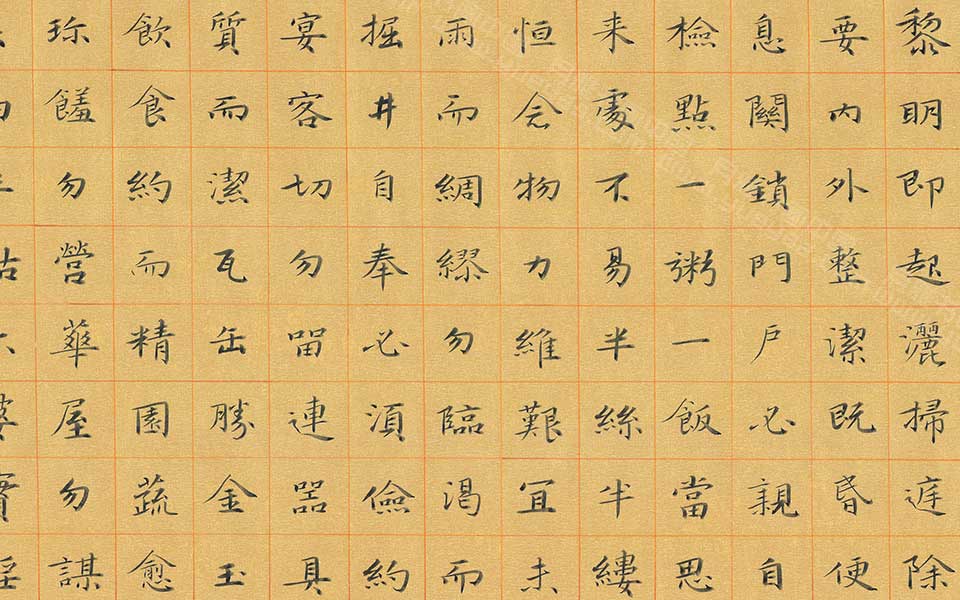 黎明即起灑掃庭除
要內外整潔既昏便
息關鎖門戶必親自
檢點一粥一飯當思
来處不易半絲半縷
恒念物力維艱宜未
雨而綢繆勿臨渴而
掘井自奉必須儉約
宴客切勿留連器具
質而潔瓦缶勝金玉
飲食約而精園蔬愈
珍饈勿營華屋勿謀
婆實淫